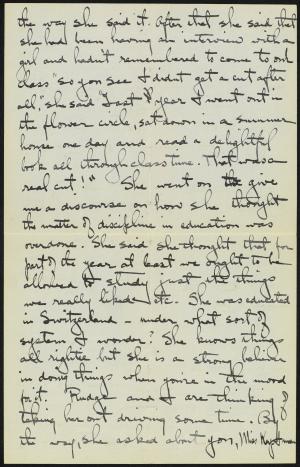 the way she said it. After that she said that
she had been having an interview with a
girl and hadn't remembered to come to our
class "so you see I didn't get a cut after
all," she said "Last year I went out in
the flower circle, sat down in a summer
house one day and read a delightful
book all through class time. That was a
real cut!" She went on give
me a discourse on how she thought
the matter of discipline in education was
overdone. She said she thought that for
part of the year at least we ought to be
allowed to study just the things
we really liked etc. She was educated
in Switzerland - under what sort of
system I wonder? She knows things
all rightee but she is a strong believer
in doing things when you're in the mood
for it. Pudge and I are thinking of
taking her out driving some time. By
the way, she asked about you, Miss